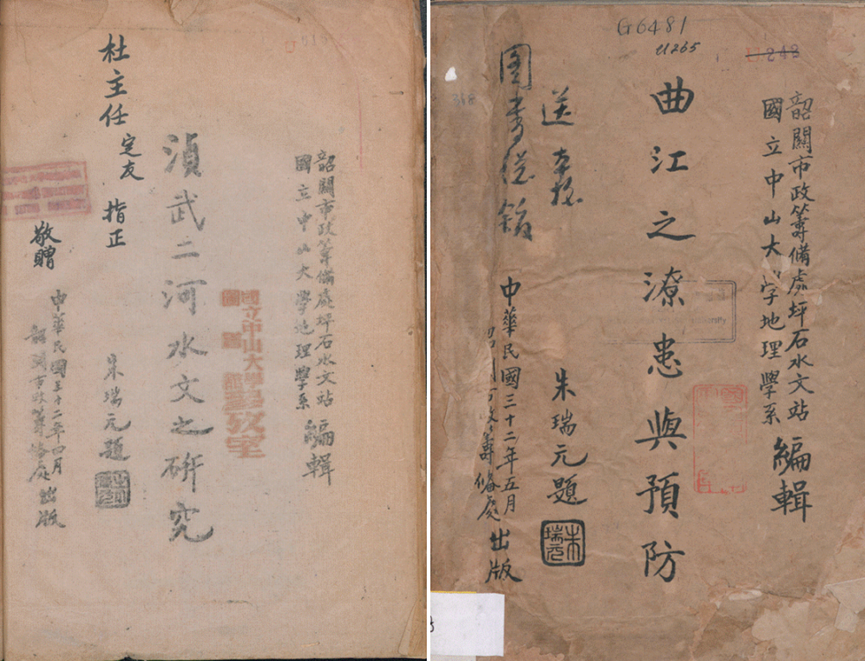 韶關市政籌備處坪石水文站
國立中山大學地理學系
編輯
湞武二河水文之研究
朱瑞元題
杜主任定友指正
敬贈
中華民國三十二年四月
韶關市政籌備處出版
國立中山大學
G6481
U265
248
韶關市政籌備處坪石水文站
國立中山大學地理學系
編輯
曲江之潦患與預防
朱瑞元題
朱瑞元
送本校
圖書總館
中華民國三十二年五月
韶關市政籌備處出版